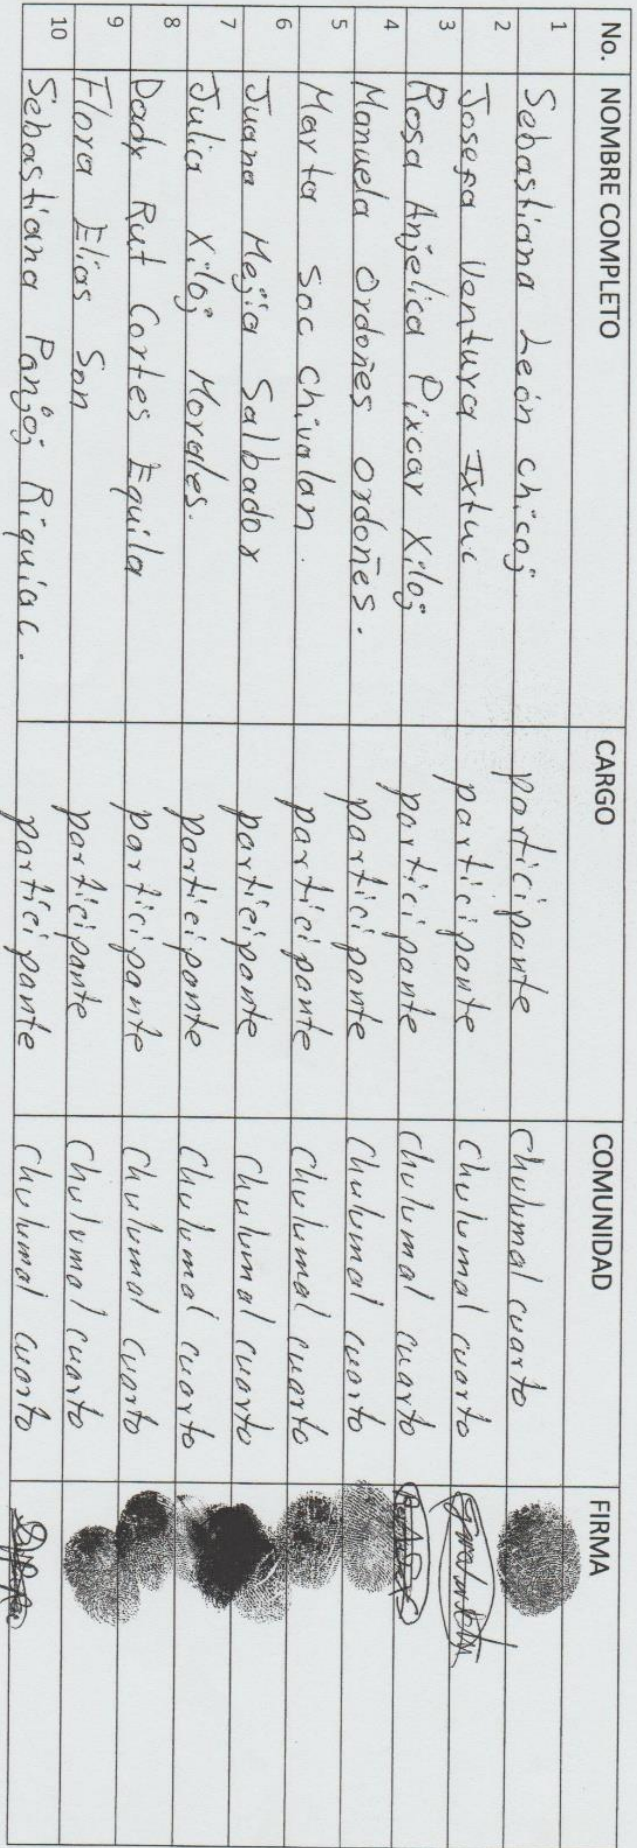 No. NOMBRE COMPLETO CARGO COMUNIDAD FIRMA
1 Sebastiana León chicoj participante chulumal cuarto
2 Josefa Ventura Ixtuc participante chulumal cuarto
3 Rosa Anjelica Pixcar Xiloj participante chulumal cuarto
4 Manuela Ordoñes ordoñes. participante chulumal cuarto
5 Marta Soc chivalan. participante chulumal cuarto
6 Juana Mejía Salbador participante chulumal cuarto
7 Julia Xiloj Morales. participante chulumal cuarto
8 Dady Rut Cortes Equila participante chulumal cuarto
9 Flora Elías Son participante chulumal cuarto
10 Sebastiana Panjoj Riquiac. participante chulumal cuarto